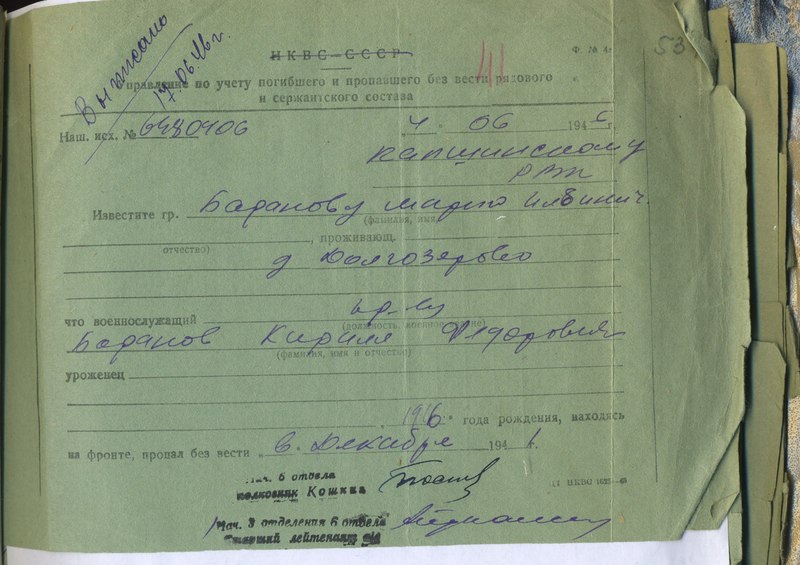 Выписано
17.06.46 г.
НКВС-СССР
Ф № 4
53
Управление по учету погибшего и пропавшего без вести рядового
и сержантского состава
Наш. исх. № 6480406
4 " 06 194 6 г.
Капшинскому
РВК
Известите гр. Баданову Марию Ильинич.
(фамилия, имя,
отчество) , проживающ.
д Долгозерово
что военнослужащий кр-ец
Баданов Кирилл Федорович
(фамилия, имя и отчество)
уроженец
1916 года рождения, находясь
на фронте, пропал без вести в. Декабре 194 1.
Нач. 6 отдела
полковник Кошкин
Нач. 3 отделения 6 отдела
старший лейтенант